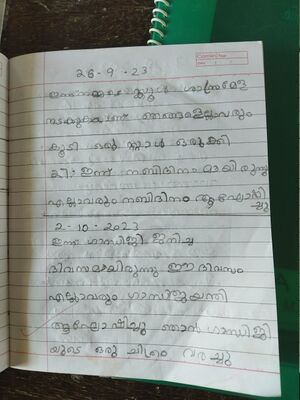 26-9-23
ഇന്ന് നമ്മുടെ സ്കൂൾ ശാസ്ത്രമേള
നടക്കുകയാണ് ഞങ്ങളെല്ലാവരും
കൂടി ഒരു സ്റ്റാൾ ഒരുക്കി
ഇന്ന് നബിദിനം മായിരുന്നു
എല്ലാവരും നബിദിനം ആഘോഷിച്ചു
2-10-2023
ഇന്ന് ഗാന്ധിജി ജനിച്ച
ദിവസമായിരുന്നു ഈ ദിവസം
എല്ലാവരും ഗാന്ധിജയന്തി
ആഘോഷിച്ചു ഞാൻ ഗാന്ധിജി
യുടെ ഒരു ചിത്രം വരച്ചു